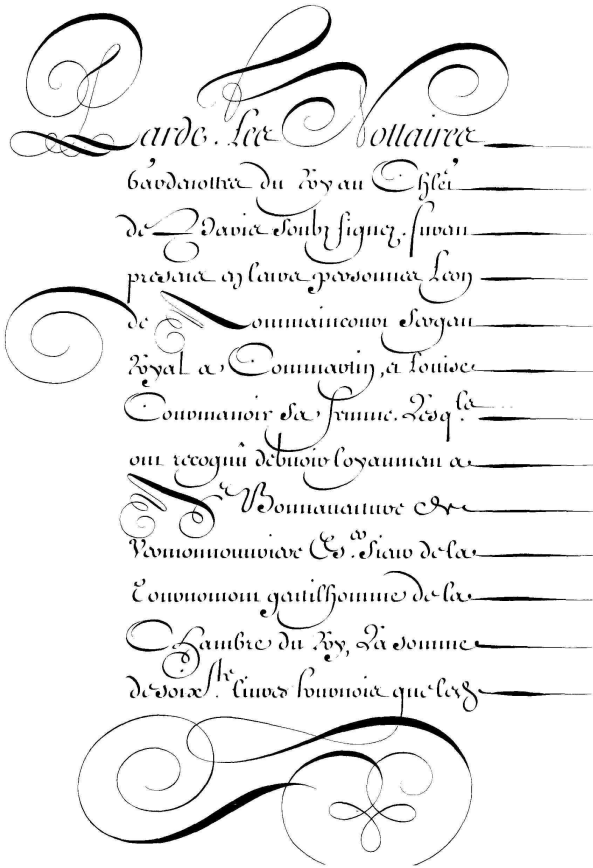 Parde. Les Nottaires
Gardenottes du Roy au Chlet
de Paris soubz signez, furent
presens en leurs personnes Leon
de Sergent
Royal a et Louise
Courmanoir sa femme. Lesq.ls
ont recognu debvoir loyaument a
Me Bonnaventure de
Es.er Sieur de la
gentilhomme de la
Chambre du Roy, La somme
de soix.te livres tournois que lesd